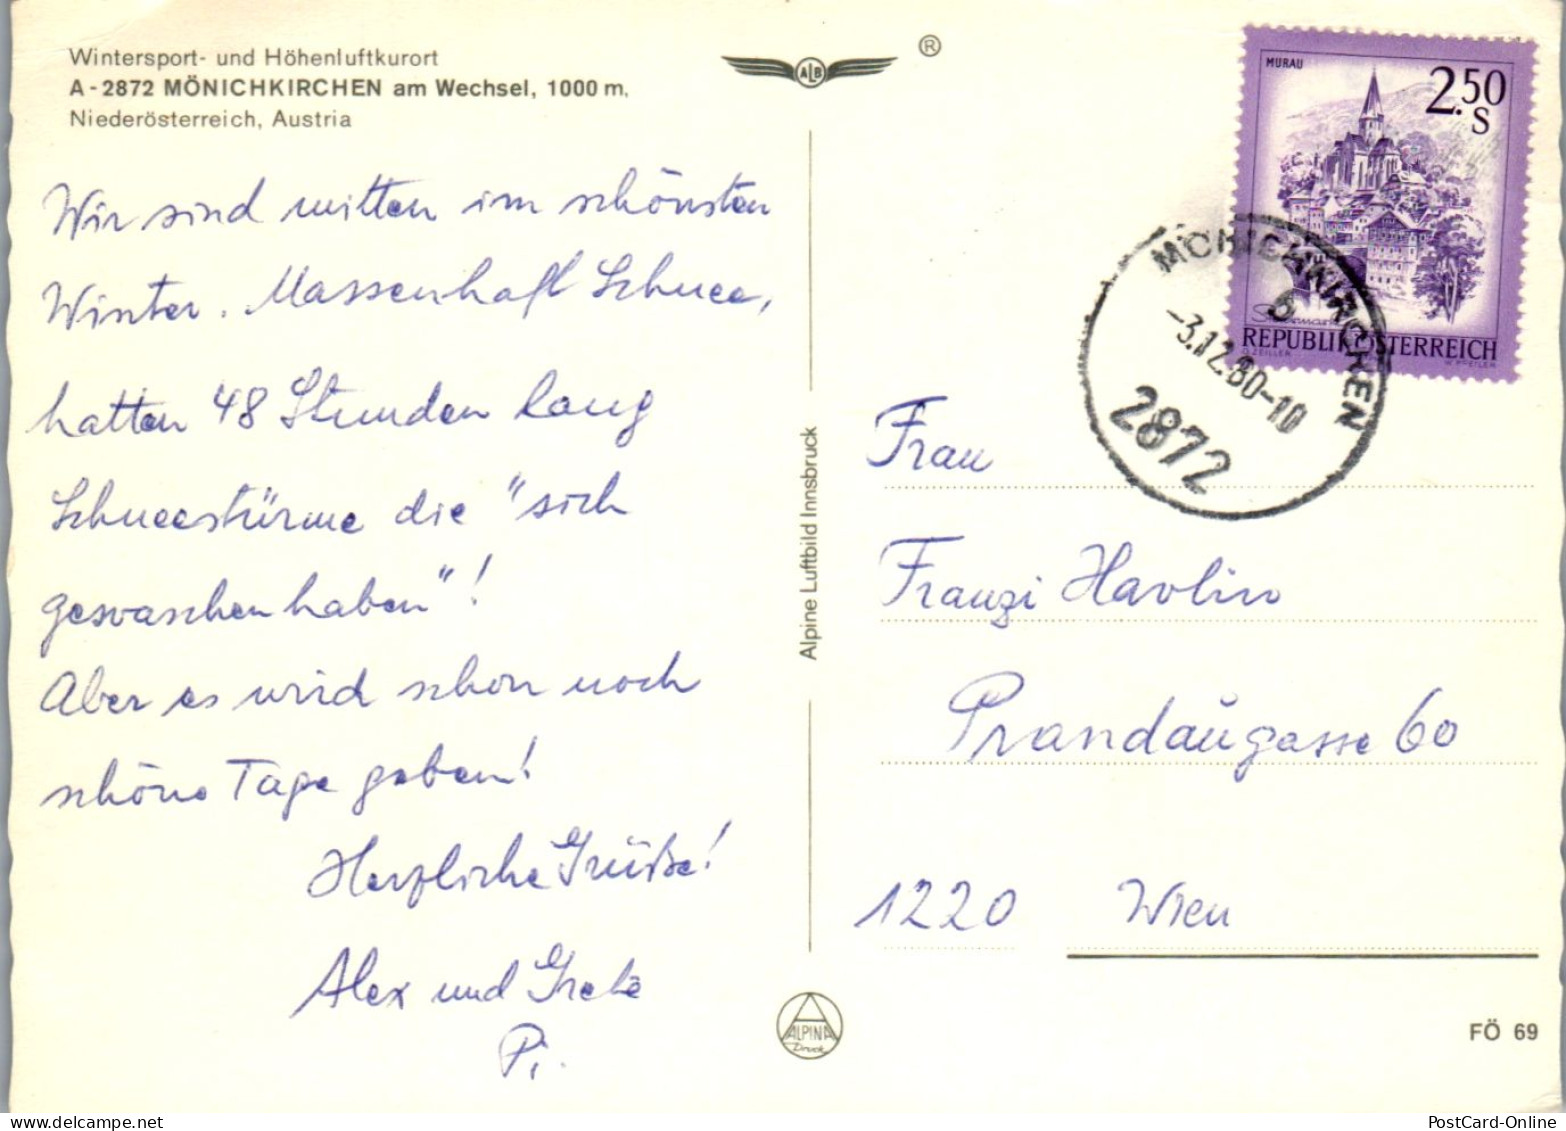 Wintersport- und Höhenluftkurort
A - 2872 MÖNICHKIRCHEN am Wechsel, 1000 m,
Niederösterreich, Austria
Wir sind mitten im schönsten
Winter. Massenhaft Schnee,
hatten 48 Stunden lang
Schneestürme die "sich
gewaschen haben"!
Aber es wird schon noch
schöne Tage geben!
Herzliche Grüße!
Alex und Grete
Pi.
ALB
®
Alpine Luftbild Innsbruck
ALPINA
Druck
MURAU
2.50
S
Steiermark
REPUBLIK ÖSTERREICH
O. ZEILLER
W. PFEILER
MÖNICHKIRCHEN
b
-3.12.80-10
2872
Frau
Franzi Havlin
Prandaugasse 60
1220 Wien
FÖ 69
PostCard-Online